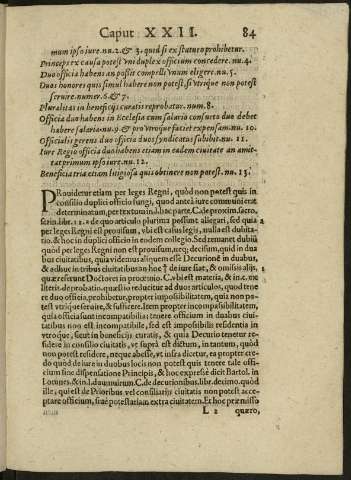 Caput XXII. 84
mum ipso iure. nu. 2. & 3. quid si ex statuto prohibetur.
Princeps ex causa potest vni duplex officium concedere. nu. 4.
Duo officia habens an possit compelli vnum eligere. nu. 5.
Duos honores quis simul habere non potest, si vtrique non potest
seruire. numer. 6. & 7.
Pluralitas in beneficijs curatis reprobatur. num. 8.
Officia duo habens in Ecclesia cum salario consueto duo debet
habere salaria. nu. 9. & pro vtroque faciet expensam. nu. 10.
Officialis gerens duo officia duos syndicatus subibit. nu. 11.
Iure Regio officia duo habens etiam in eadem ciuitate an amit-
tat primum ipso iure. nu. 12.
Beneficia tria etiam litigiosa quis obtinere non potest. nu. 13.
PRouidetur etiam per leges Regni, quòd non potest quis in
consilio duplici officio fungi, quod anteà iure communi erat
determinatum, per textura in l. hac parte. C. de proxim. sacro.
scrin. libr. 12. de quo articulo plurima possunt allegari, sed quia
per leges Regni est prouisum, vbi est casus legis, nulla est dubita-
tio. & hoc in duplici officio in eodem collegio. Sed remanet dubiũ
quòd per leges Regni non est prouisum, neq; decisum, quid in dua
bus ciuitatibus, quia videmus aliquem esse Decurionẽ in duabus,
& adhuc in tribus ciuitatibus an hoc † de iure fiat, & omissis alijs,
quæ referunt Doctores in proœmio. C. vbi est materia, & in c. cũ
litteris de probatio. quæstio reducitur ad duos articulos, quod tene
re duo officia, prohibetur, propter impossibilitatem, quia non po-
test vtrique seruire, & sufficere. Item propter incompatibilitatem,
quia officia sunt incompatibilia: tenere officium in duabus ciui-
tatibus non est incompatibile, sed est impossibilis residentia in
vtroque, sicut in beneficijs curatis, & quia Decurio tenetur re-
sidere in consilio ciuitatis, vt suprà est dictum, in tantum, quòd
non potest residere, neque abesse, vt infra dicetur, ea propter cre-
do quòd de iure in duobus locis non potest quis tenere tale offi-
cium sine dispensatione Principis, & hoc expressè dicit Bartol. in
l. ciuilis, & in l. duumuirum. C. de decurionibus, libr. decimo. quòd
ille, qui est de Prioribus vel consiliarijs ciuitatis non potest
acceptare officium, siue potestariam extra ciuitatem. Et hoc præmisso
L 2 quæro,